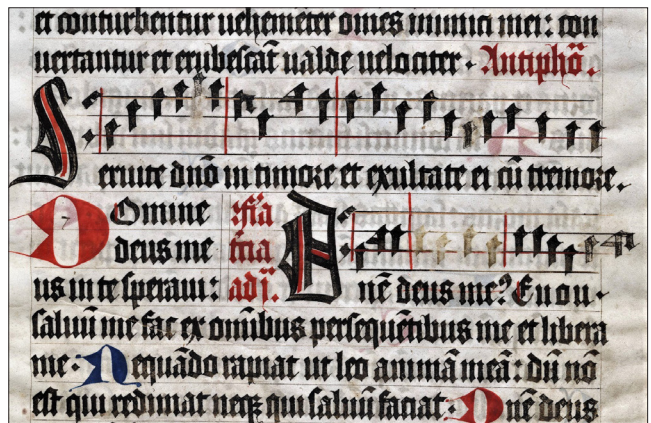 et conturbentur uehemēter om̄es inimici mei: con
uertantur et erubescāt ualde uelociter. Antiphō.
Seruite dn̄o in timore et exultate ei cū tremore.
Domine
deus me
us in te speraui:
Dn̄e deus me? Euou.
saluū me fac ex om̄ibus persequētibus me et libera
me. Nequādo rapiat ut leo animā meā: dū nō
est qui redimat neqꝫ qui saluū faciat. Dn̄e deus